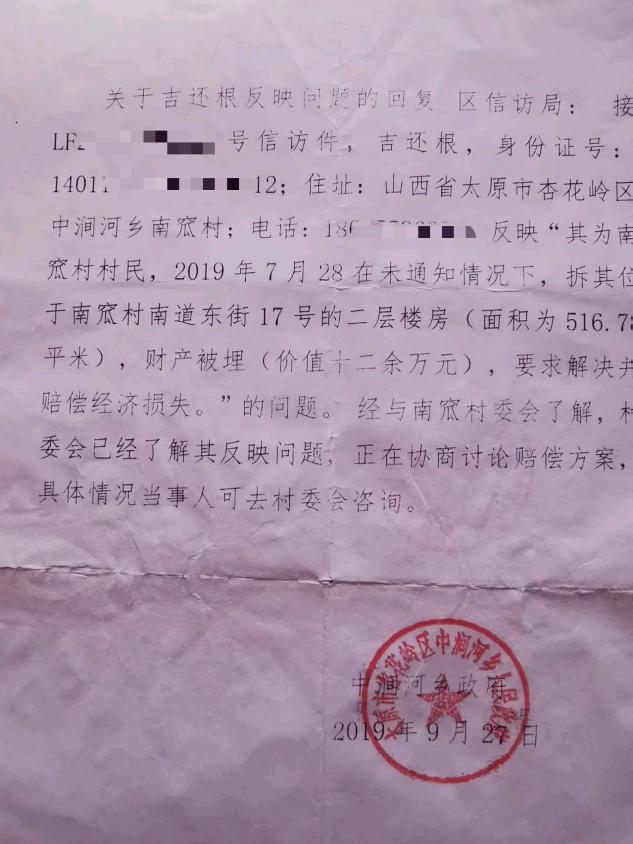 关于吉还根反映问题的回复 区信访局： 接
LF 号信访件，吉还根，身份证号：
14011 12；住址：山西省太原市杏花岭区
中涧河乡南窊村；电话：18 反映“其为南
窊村村民，2019 年 7 月 28 在未通知情况下，拆其位
于南窊村南道东街 17 号的二层楼房（面积为 516.78
平米），财产被埋（价值十二余万元），要求解决并
赔偿经济损失。”的问题。 经与南窊村委会了解，村
委会已经了解其反映问题，正在协商讨论赔偿方案，
具体情况当事人可去村委会咨询。
中涧河乡政府
2019 年 9 月 27 日
太原市杏花岭区中涧河乡人民政府